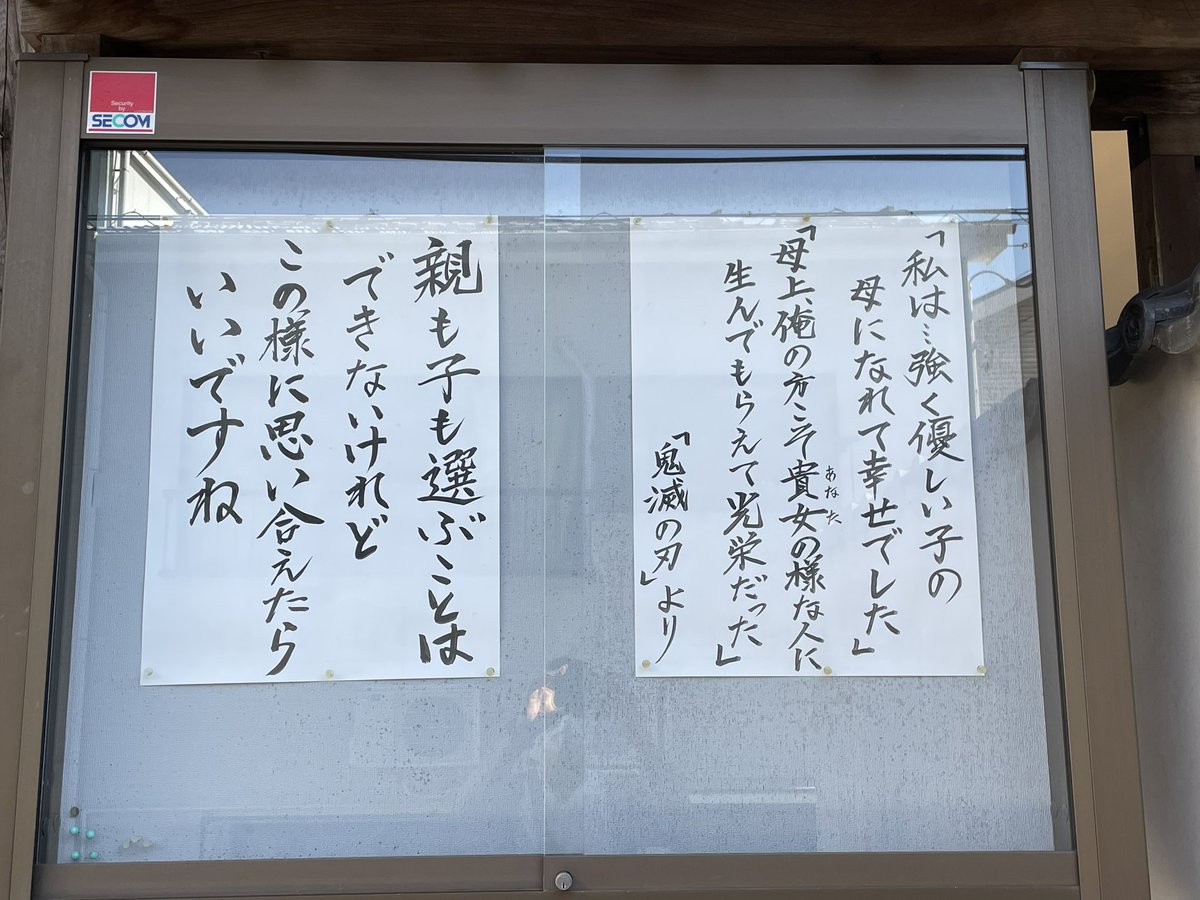 「私は…強く優しい子の
母になれて幸せでした」
「母上、俺の方こそ貴女の様な人に
あなた
生んでもらえて光栄だった」
「鬼滅の刃」より
親も子も選ぶことは
できないけれど
この様に思い合えたら
いいですね
Security
by
SECOM